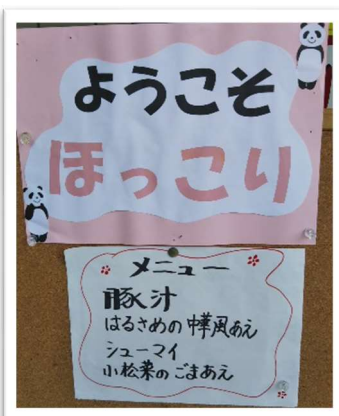 ようこそ
ほっこり
メニュー
豚汁
はるさめの中華風あえ
シューマイ
小松菜のごまあえ